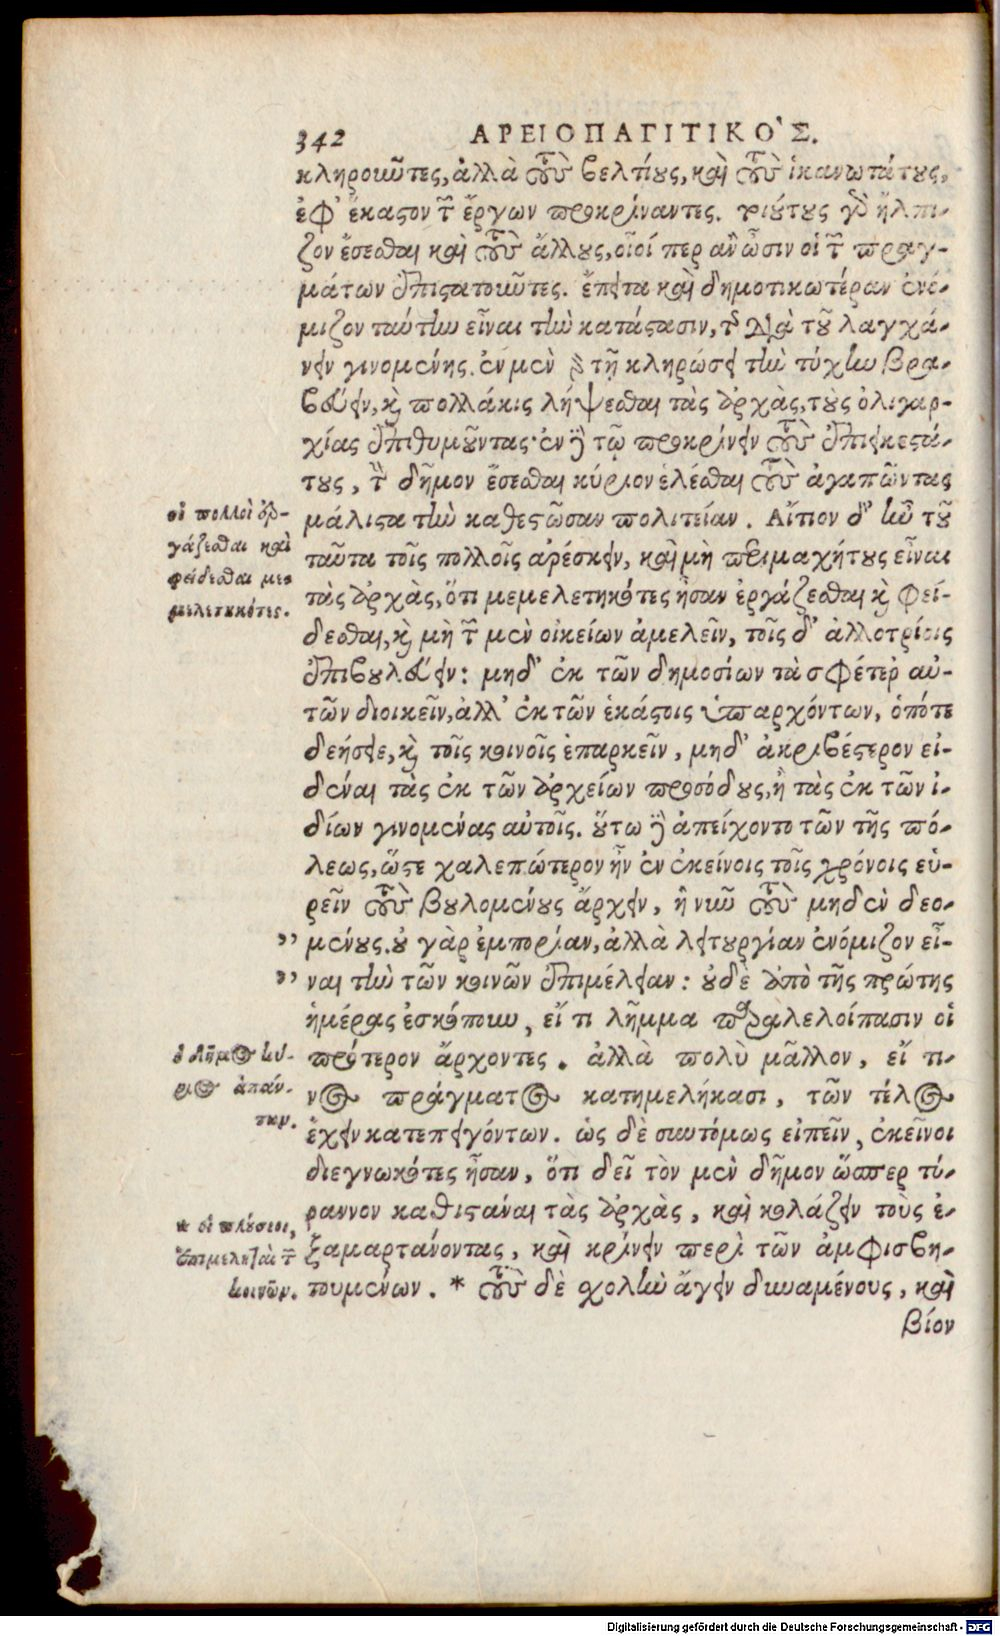 342 ΑΡΕΙΟΠΑΓΙΤΙΚΟ'Σ.
κληροῦντες, ἀλλὰ τοὺς βελτίους, καὶ τοὺς ἱκανωτάτους,
ἐφ' ἕκαστον τῶν ἔργων προκρίναντες. τοιούτους γὸ ἤλπι-
ζον ἔσεσθαι καὶ τοὺς ἄλλους, οἷοί περ ἂν ὦσιν οἱ τῶν πραγ-
μάτων ἐπιστατοῦντες. ἔπειτα καὶ δημοτικωτέραν ἐνό-
μιζον ταύτην εἶναι τὴν κατάστασιν, τῆς διὰ τοῦ λαγχά-
νειν γινομένης. ἐν μὲν γὸ τῇ κληρώσει τὴν τύχην βρα-
βεύειν, καὶ πολλάκις λήψεσθαι τὰς ἀρχὰς, τοὺς ὀλιγαρ-
χίας ἐπιθυμοῦντας· ἐν δὲ τῷ προκρίνειν τοὺς ἐπιεικεστά-
τους, τὸν δῆμον ἔσεσθαι κύριον ἑλέσθαι τοὺς ἀγαπῶντας
οἱ πολλοὶ ἐρ-
γάζεσθαι καὶ
φείδεσθαι με-
μελετηκότες.
μάλιστα τὴν καθεστῶσαν πολιτείαν. Αἴτιον δ' ἦν τοῦ
ταῦτα τοῖς πολλοῖς ἀρέσκειν, καὶ μὴ περιμαχήτους εἶναι
τὰς ἀρχὰς, ὅτι μεμελετηκότες ἦσαν ἐργάζεσθαι καὶ φεί-
δεσθαι, καὶ μὴ τῶν μὲν οἰκείων ἀμελεῖν, τοῖς δ' ἀλλοτρίοις
ἐπιβουλεύειν: μηδ' ἐκ τῶν δημοσίων τὰ σφέτερ αὐ-
τῶν διοικεῖν, ἀλλ' ἐκ τῶν ἑκάστοις ὑπαρχόντων, ὁπότε
δεήσειε, καὶ τοῖς κοινοῖς ἐπαρκεῖν, μηδ' ἀκριβέστερον εἰ-
δέναι τὰς ἐκ τῶν ἀρχείων προσόδους, ἢ τὰς ἐκ τῶν ἰ-
δίων γινομένας αὐτοῖς. οὕτω δ' ἀπείχοντο τῶν τῆς πό-
λεως, ὥστε χαλεπώτερον ἦν ἐν ἐκείνοις τοῖς χρόνοις εὑ-
ρεῖν τοὺς βουλομένους ἄρχειν, ἢ νῦν τοὺς μηδὲν δεο-
„ μένους. οὐ γὰρ ἐμπορίαν, ἀλλὰ λειτουργίαν ἐνόμιζον εἶ-
„ ναι τὴν τῶν κοινῶν ἐπιμέλειαν: οὐδὲ ἀπὸ τῆς πρώτης
ἡμέρας ἐσκόπουν, εἴ τι λῆμμα παραλελοίπασιν οἱ
ὁ δῆμος κύ-
ριος ἁπάν-
των.
πρότερον ἄρχοντες. ἀλλὰ πολὺ μᾶλλον, εἴ τι-
νος πράγματος κατημελήκασι, τῶν τέλος
ἔχειν κατεπειγόντων. ὡς δὲ συντόμως εἰπεῖν, ἐκεῖνοι
διεγνωκότες ἦσαν, ὅτι δεῖ τὸν μὲν δῆμον ὥσπερ τύ-
ραννον καθιστάναι τὰς ἀρχὰς, καὶ κολάζειν τοὺς ἐ-
ξαμαρτάνοντας, καὶ κρίνειν περὶ τῶν ἀμφισβη-
* οἱ πλούσιοι,
ἐπιμεληταὶ τῶν
κοινῶν.
τουμένων. * τοὺς δὲ σχολὴν ἄγειν δυναμένους, καὶ
βίον
Digitalisierung gefördert durch die Deutsche Forschungsgemeinschaft - DFG